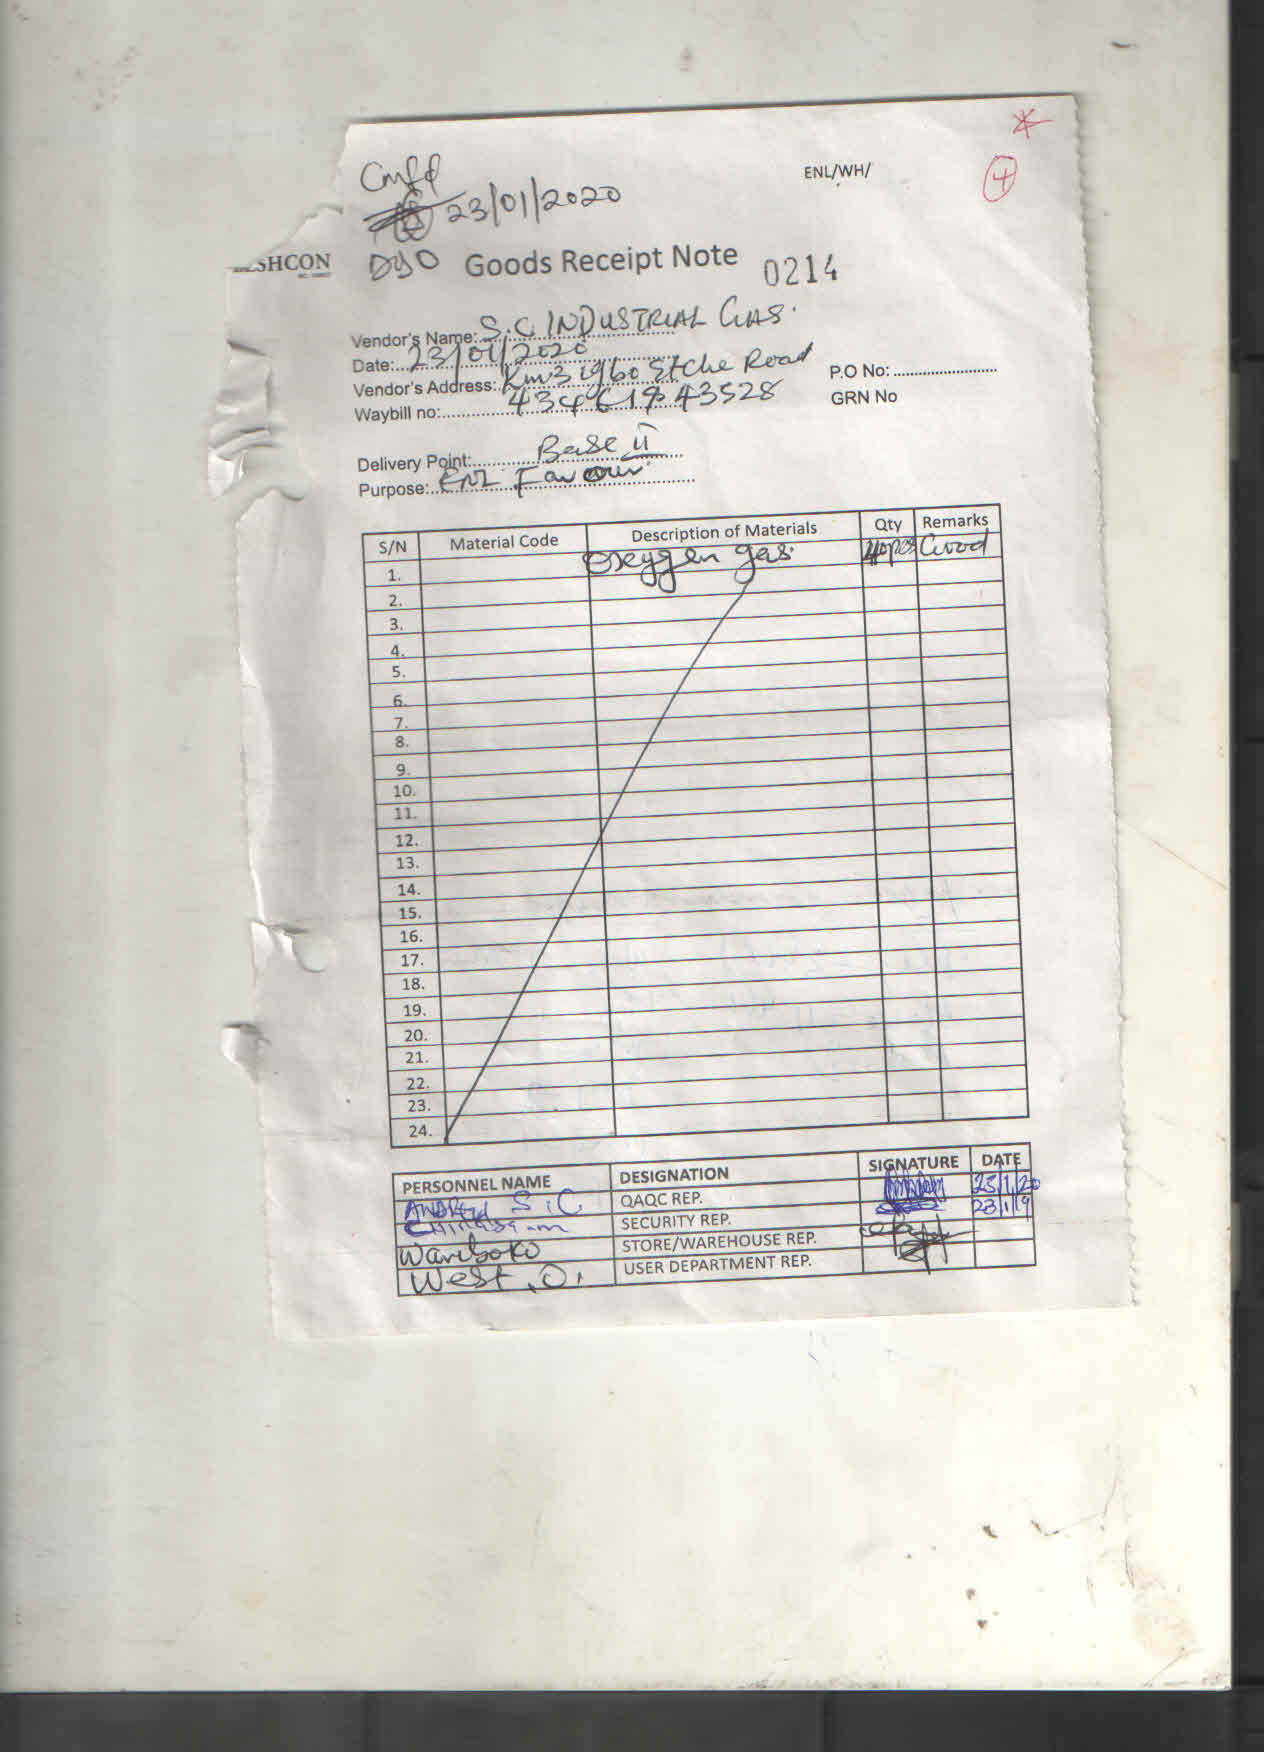 ENL/WH/
4
23/01/2020
SHCON
Goods Receipt Note 0214
Vendor's Name: S.C INDUSTRIAL GAS.
Date: 23/01/2020
Vendor's Address: Km3 igbo Etche Road
P.O No:
Waybill no: 43528
GRN No
Delivery Point: Base II
Purpose: ENL Favour
S/N Material Code Description of Materials Qty Remarks
1. Oxeygen gas. Good
2.
3.
4.
5.
6.
7.
8.
9.
10.
11.
12.
13.
14.
15.
16.
17.
18.
19.
20.
21.
22.
23.
24.
PERSONNEL NAME DESIGNATION SIGNATURE DATE
S.C QAQC REP. 23/1/20
SECURITY REP. 23/1/19
Wariboko STORE/WAREHOUSE REP.
West .O. USER DEPARTMENT REP.